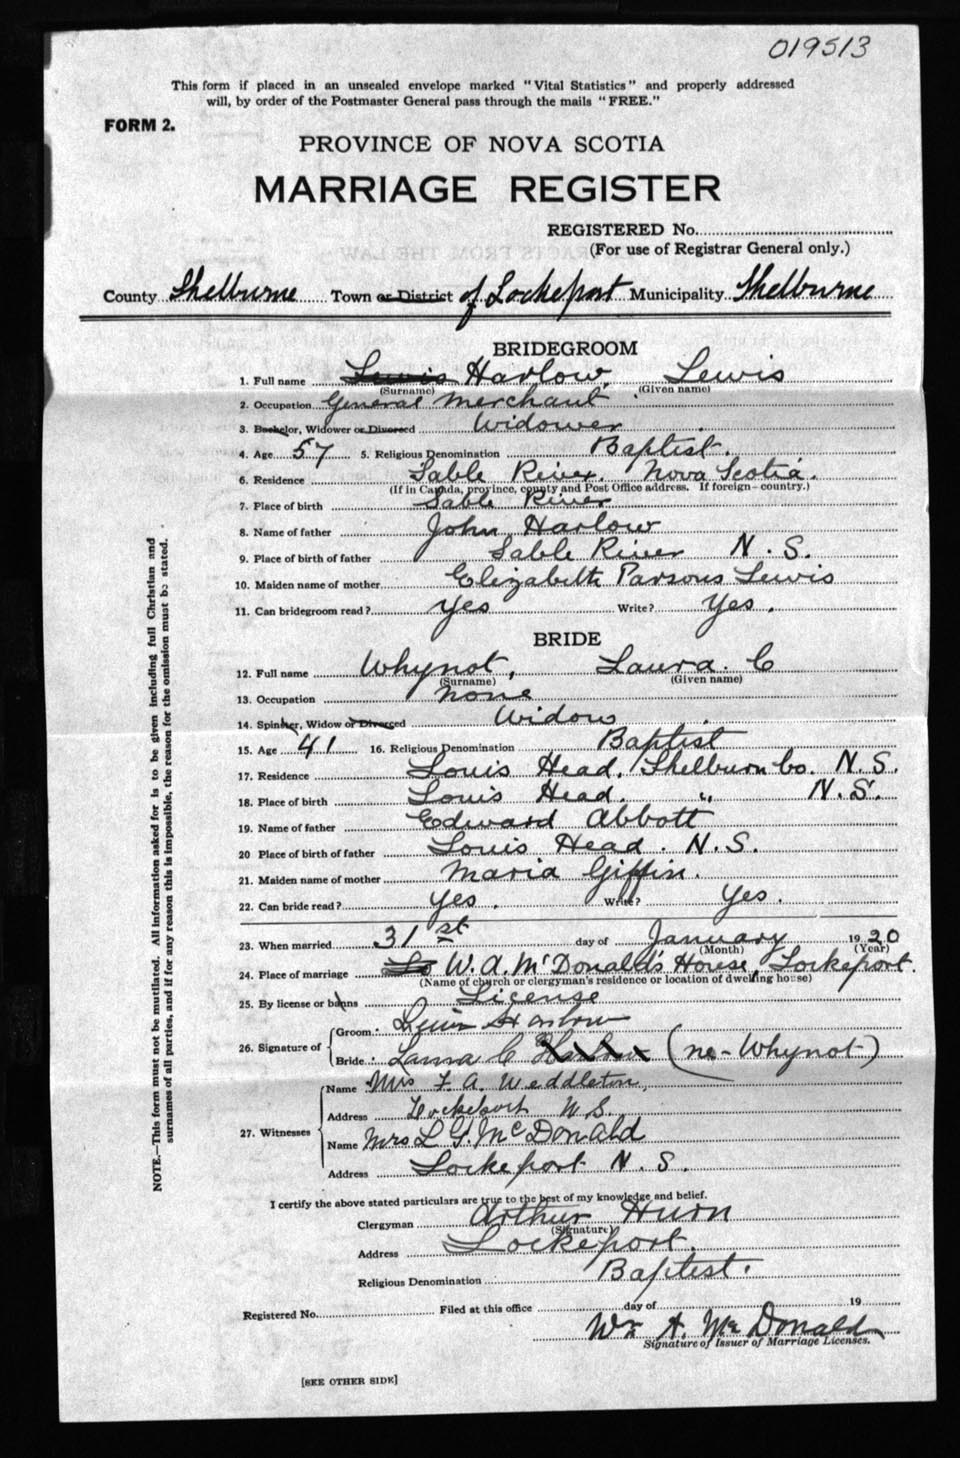 019513
This form if placed in an unsealed envelope marked "Vital Statistics" and properly addressed
will, by order of the Postmaster General pass through the mails "FREE."
FORM 2.
PROVINCE OF NOVA SCOTIA
MARRIAGE REGISTER
REGISTERED No.
(For use of Registrar General only.)
County Shelburne Town or District of Lockeport Municipality Shelburne
BRIDEGROOM
1. Full name Lewis Harlow, Lewis
(Surname) (Given name)
2. Occupation General Merchant
3. Bachelor, Widower or Divorced Widower
4. Age 57 5. Religious Denomination Baptist.
6. Residence Sable River, Nova Scotia.
(If in Canada, province, county and Post Office address. If foreign—country.)
7. Place of birth Sable River
8. Name of father John Harlow
9. Place of birth of father Sable River N.S.
10. Maiden name of mother Elizabeth Parsons Lewis
11. Can bridegroom read? Yes Write? Yes.
BRIDE
12. Full name Whynot, Laura. C
(Surname) (Given name)
13. Occupation None
14. Spinster, Widow or Divorced Widow
15. Age 41 16. Religious Denomination Baptist
17. Residence Louis Head, Shelburn Co. N.S.
18. Place of birth Louis Head. " N.S.
19. Name of father Edward Abbott
20 Place of birth of father Louis Head. N.S.
21. Maiden name of mother Maria Giffin.
22. Can bride read? Yes. Write? Yes.
23. When married 31st day of January 1920
(Month) (Year)
24. Place of marriage Lo W. A. McDonald's House, Lockeport.
(Name of church or clergyman's residence or location of dwelling house)
25. By license or banns License
26. Signature of Groom: Lewis Harlow
Bride: Laura C Harlow (ne-Whynot)
27. Witnesses
Name Mrs F. A. Weddleton,
Address Lockeport N.S.
Name Mrs L G. McDonald
Address Lockeport N.S.
I certify the above stated particulars are true to the best of my knowledge and belief.
Clergyman Arthur Hurn
(Signature)
Address Lockeport.
Religious Denomination Baptist.
Registered No. Filed at this office day of 19
Wm A. McDonald
Signature of Issuer of Marriage Licenses.
[SEE OTHER SIDE]
NOTE.—This form must not be mutilated. All information asked for is to be given including full Christian and
surnames of all parties, and if for any reason this is impossible, the reason for the omission must be stated.